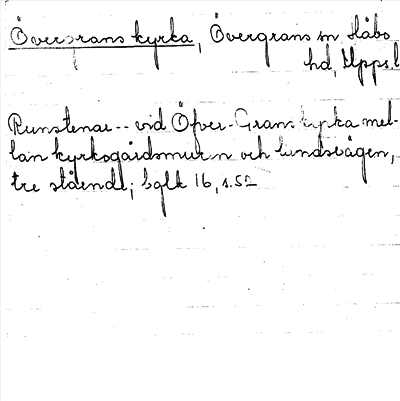 Övergrans kyrka, Övergrans sn, Håbo
hd, Upps.l
Runstenar -- vid Öfver-Grans kyrka mel-
lan kyrkogårdsmuren och landsvägen,
tre stående; bglk 16, s. 52